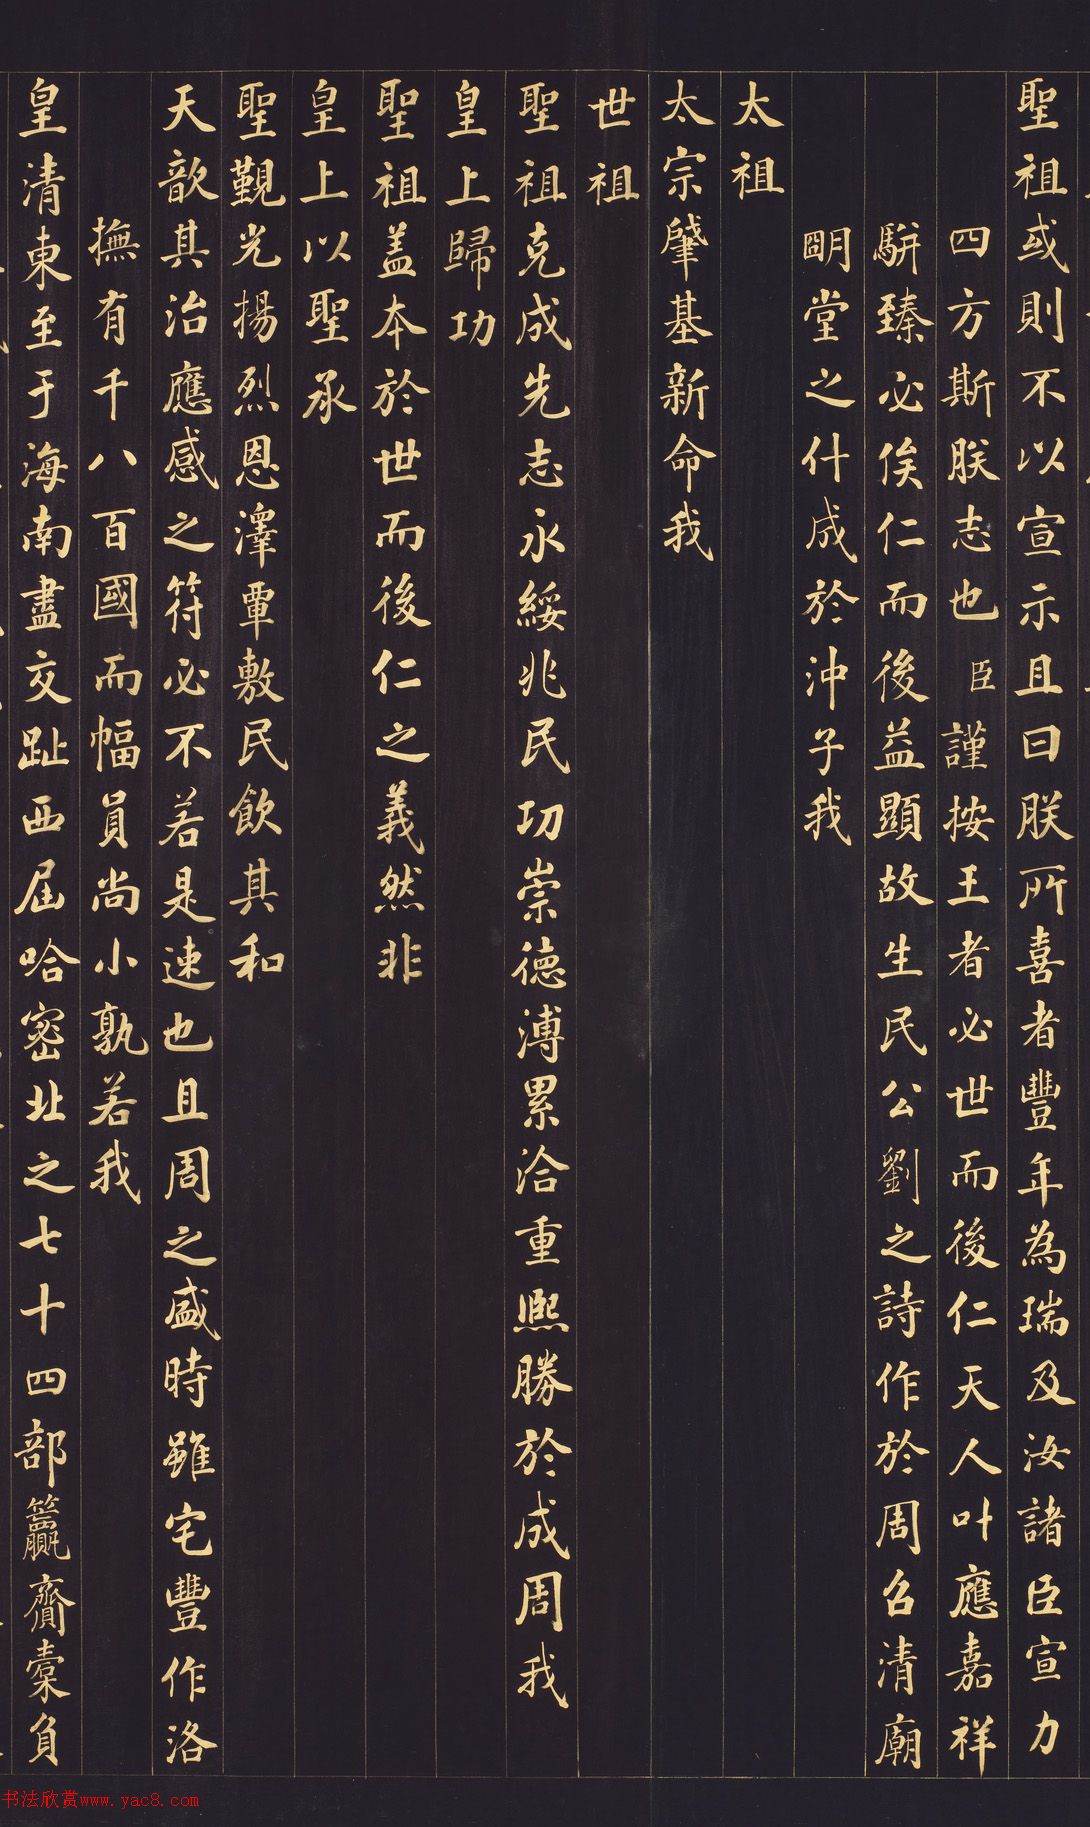 聖祖或則不以宣示且曰朕所喜者豐年為瑞及汝諸臣宣力
四方斯朕志也臣謹按王者必世而後仁天人叶應嘉祥
駢臻必俟仁而後益顯故生民公劉之詩作於周召清廟
朙堂之什成於沖子我
太祖
太宗肇基新命我
世祖
聖祖克成先志永綏兆民功崇德溥累洽重熙勝於成周我
皇上歸功
聖祖蓋本於世而後仁之義然非
皇上以聖承
聖覲光揚烈恩澤覃敷民飲其和
天歆其治應感之符必不若是速也且周之盛時雖宅豐作洛
撫有千八百國而幅員尚小孰若我
皇清東至于海南盡交趾西届哈密北之七十四部籯齎橐負
书法欣赏www.yac8.com